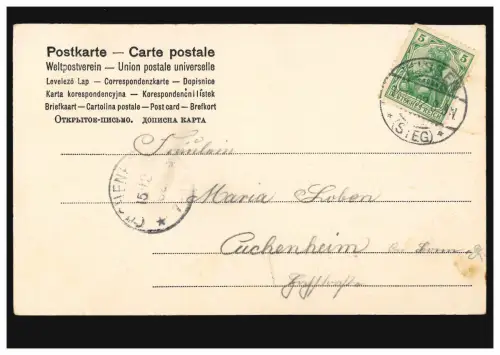 Postkarte — Carte postale
Weltpostverein — Union postale universelle
Levelező Lap — Correspondenzkarte — Dopisnice
Karta korespondencyjna — Korespondenční lístek
Briefkaart — Cartolina postale — Post card — Brefkort
Открытое-письмо. Дописна карта
5 5
(SIEG)
Fräulein
Maria
Cuchenheim